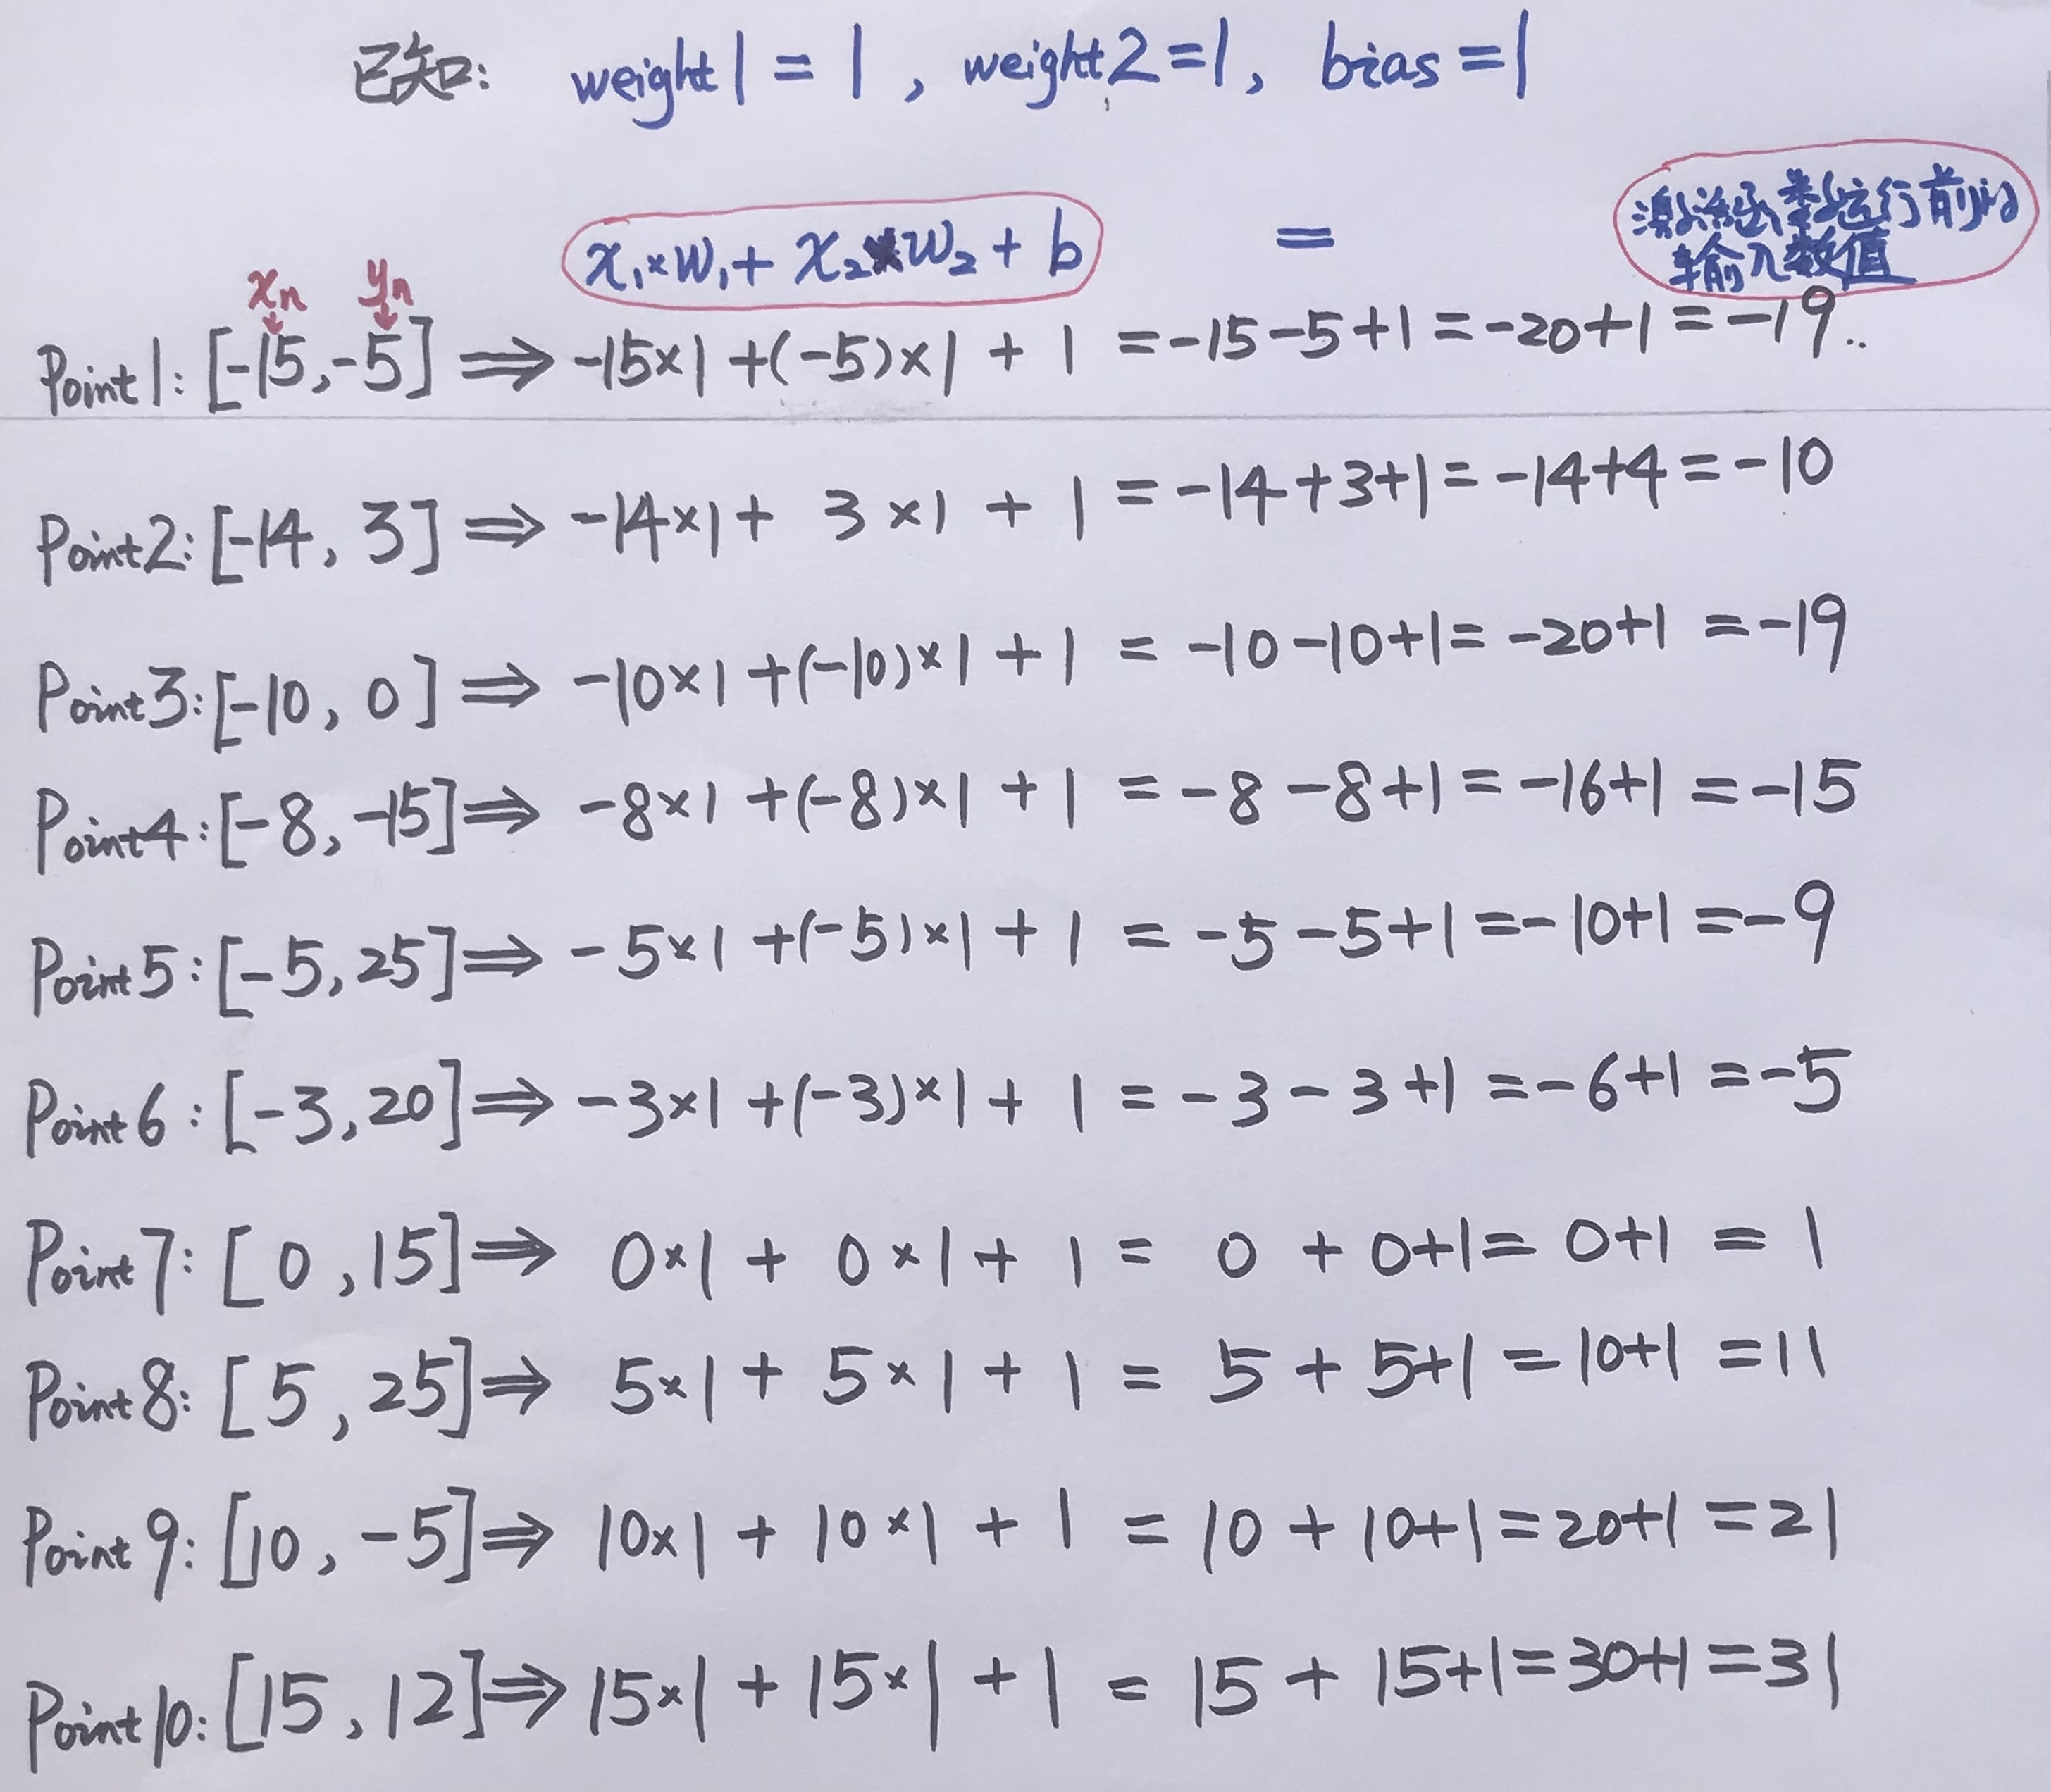 已知: weight1 = 1, weight2=1, bias=1
x₁×w₁+ x₂×w₂ + b = 激活函数运行前的
输入数值
xₙ yₙ
Point1: [-15,-5] ⟹ -15×1 +(-5)×1 + 1 =-15-5+1=-20+1=-19..
Point2: [-14, 3] ⟹ -14×1+ 3×1 + 1 = -14+3+1= -14+4=-10
Point3: [-10, 0] ⟹ -10×1 +(-10)×1 + 1 = -10-10+1= -20+1 =-19
Point4: [-8, -15] ⟹ -8×1 +(-8)×1 + 1 = -8-8+1= -16+1 =-15
Point5: [-5,25] ⟹ -5×1 +(-5)×1 + 1 = -5-5+1 =-10+1 =-9
Point6: [-3,20] ⟹ -3×1 +(-3)×1 + 1 = -3-3+1 =-6+1 =-5
Point7: [0,15] ⟹ 0×1 + 0×1 + 1 = 0 + 0+1= 0+1 = 1
Point8: [5,25] ⟹ 5×1 + 5×1 + 1 = 5 + 5+1 =10+1 =11
Point9: [10,-5] ⟹ 10×1 + 10×1 + 1 = 10 + 10+1=20+1 =21
Point10: [15,12] ⟹ 15×1 + 15×1 + 1 = 15 + 15+1=30+1=31